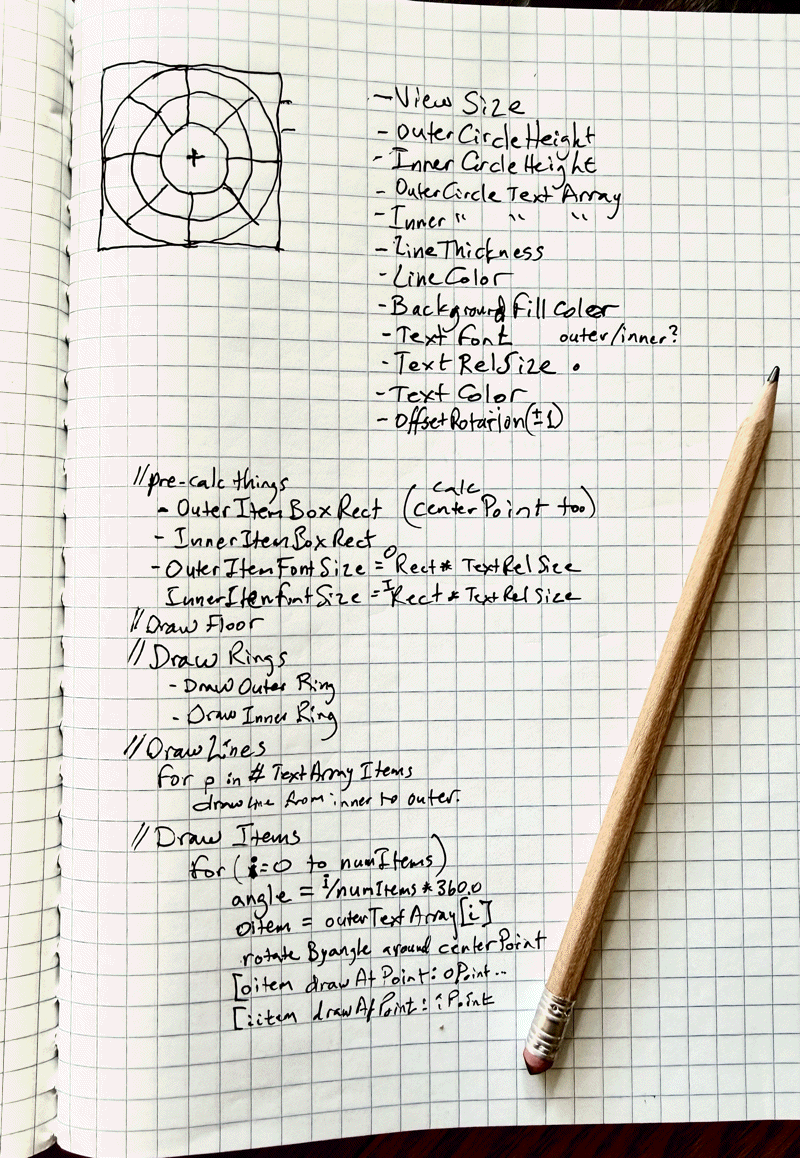 - View Size
- OuterCircleHeight
- InnerCircleHeight
- OuterCircle Text Array
- Inner " " "
- LineThickness
- LineColor
- Background Fill Color
- Text Font outer/inner?
- Text RelSize •
- Text Color
- OffsetRotation(±1)
// pre-calc things
- OuterItemBoxRect (calc centerPoint too)
- InnerItemBoxRect
- OuterItemFontSize = O Rect * TextRelSize
InnerItemFontSize = I Rect * TextRelSize
// Draw Floor
// Draw Rings
- Draw Outer Ring
- Draw Inner Ring
// Draw Lines
for p in # TextArray Items
drawline from inner to outer.
// Draw Items
for (i=0 to numItems)
angle = i/numItems * 360.0
oitem = outerTextArray[i]
rotate Byangle around centerPoint
[oitem drawAtPoint: oPoint..
[iitem drawAtPoint: iPoint